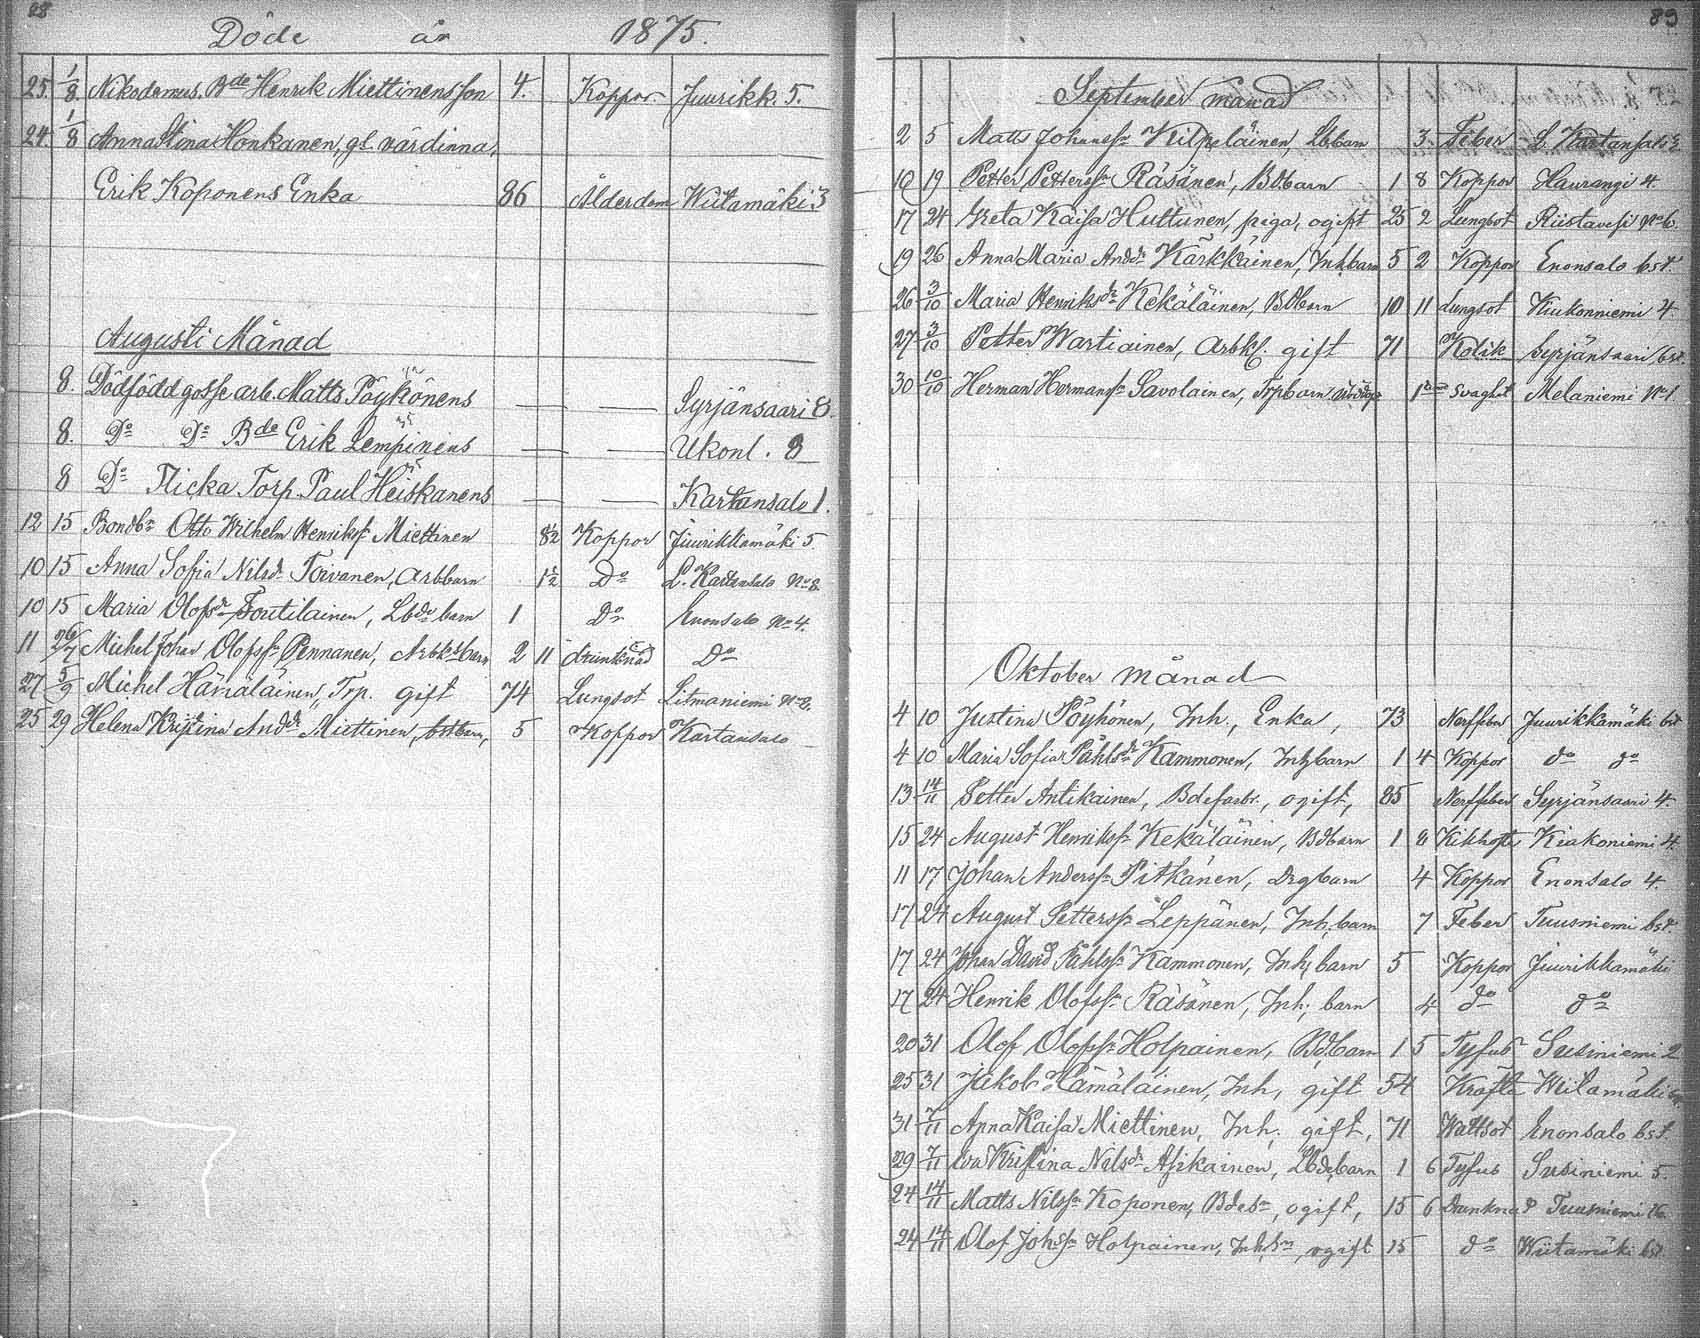 88
Döde år 1875.
25. 1/8. Nikodemus. Bde Henrik Miettinens son 4. Koppor. Juurikk. 5.
24. 1/8 Anna Stina Honkanen, gl. värdinna,
Erik Koponens Enka 86 Ålderdom Wiitamäki 3
Augusti Månad
8. Dödfödd gosse arb. Matts Pöykönens — — Syrjänsaari 8.
8. Do Do Bde Erik Lempinens — — Ukonl. 3
8 Do Flicka Torp. Paul Heiskanens — — Kartansalo 1.
12 15 Bondbn Otto Wilhelm Henrikss. Miettinen 8½ Koppor Juurikkamäki 5.
10 15 Anna Sofia Nilsdr Toivanen, Arbbarn 1½ Do L. Kartansalo No 8.
10 15 Maria Olofsdr Toutilainen, Lbde barn 1 Do Enonsalo No 4.
11 26/7 Michel Johan Olofssn Pennanen, Arbksbarn 2 11 drunknad Do
27 5/9 Michel Hämäläinen, Trp. gift 74 Lungsot Litmaniemi No
25 29 Helena Kristina Andsdr Miettinen, bstbarn, 5 Koppor Kartansalo
89
September månad
2 5 Matts Johanssn Kilpeläinen, Lbbarn 3 Feber L Kartansalo
10 19 Petter Petterssn Räsänen, Bdbarn 1 8 Koppor Haurangi 4.
17 24 Greta Kaisa Huttunen, piga, ogift 25 2 Lungsot Riistavesi No 6.
19 26 Anna Maria Andsdr Kärkkäinen, Inh.barn 5 2 Koppor Enonsalo bst.
26 3/10 Maria Henriksdr Kekäläinen, Bdbarn 10 11 Lungsot Kiukonniemi 4.
27 3/10 Petter Wartiainen, Arbkl. gift 71 Kolik Syrjänsaari bst.
30 10/10 Herman Hermanssn Savolainen, Trpbarn 1 Svaghet Melaniemi No 1.
Oktober månad
4 10 Justina Pöyhönen, Inh., Enka, 73 Nerffeber Juurikkamäki bst
4 10 Maria Sofia Påhlsdr Kammonen, Inh.barn 1 4 Koppor do do
13 14/11 Petter Antikainen, Bdefarbr., ogift, 85 Nerffeber Syrjänsaari 4.
15 24 August Henrikssn Kekäläinen, Bdbarn 1 8 Kikhosta Kiakoniemi 4.
11 17 Johan Anderssn Pitkänen, Drgbarn 4 Koppor Enonsalo 4.
17 24 August Petterssn Leppänen, Inh; barn 7 Feber Tuusniemi bst.
17 24 Johan David Påhlssn Kammonen, Inh; barn 5 Koppor Juurikkamäki
17 24 Henrik Olofssn Räsänen, Inh; barn 4 do do
20 31 Olof Olofssn Holpainen, Bdbarn 1 5 Tyfus Susiniemi 2
25 31 Jakob Hämäläinen, Inh, gift 54 Kräfta Wiitamäki
31 7/11 Anna Kaisa Miettinen, Inh; gift, 71 Wattsot Enonsalo bst.
29 7/11 Eva Kristina Nilsdr Asikainen, Lbdebarn 1 6 Tyfus Susiniemi 5.
24 14/11 Matts Nilssn Koponen, Bdesn, ogift, 15 6 Drunknad Tuusniemi
24 14/11 Olof Johssn Holpainen, Inh.sn, ogift 15 do Wiitamäki bst.